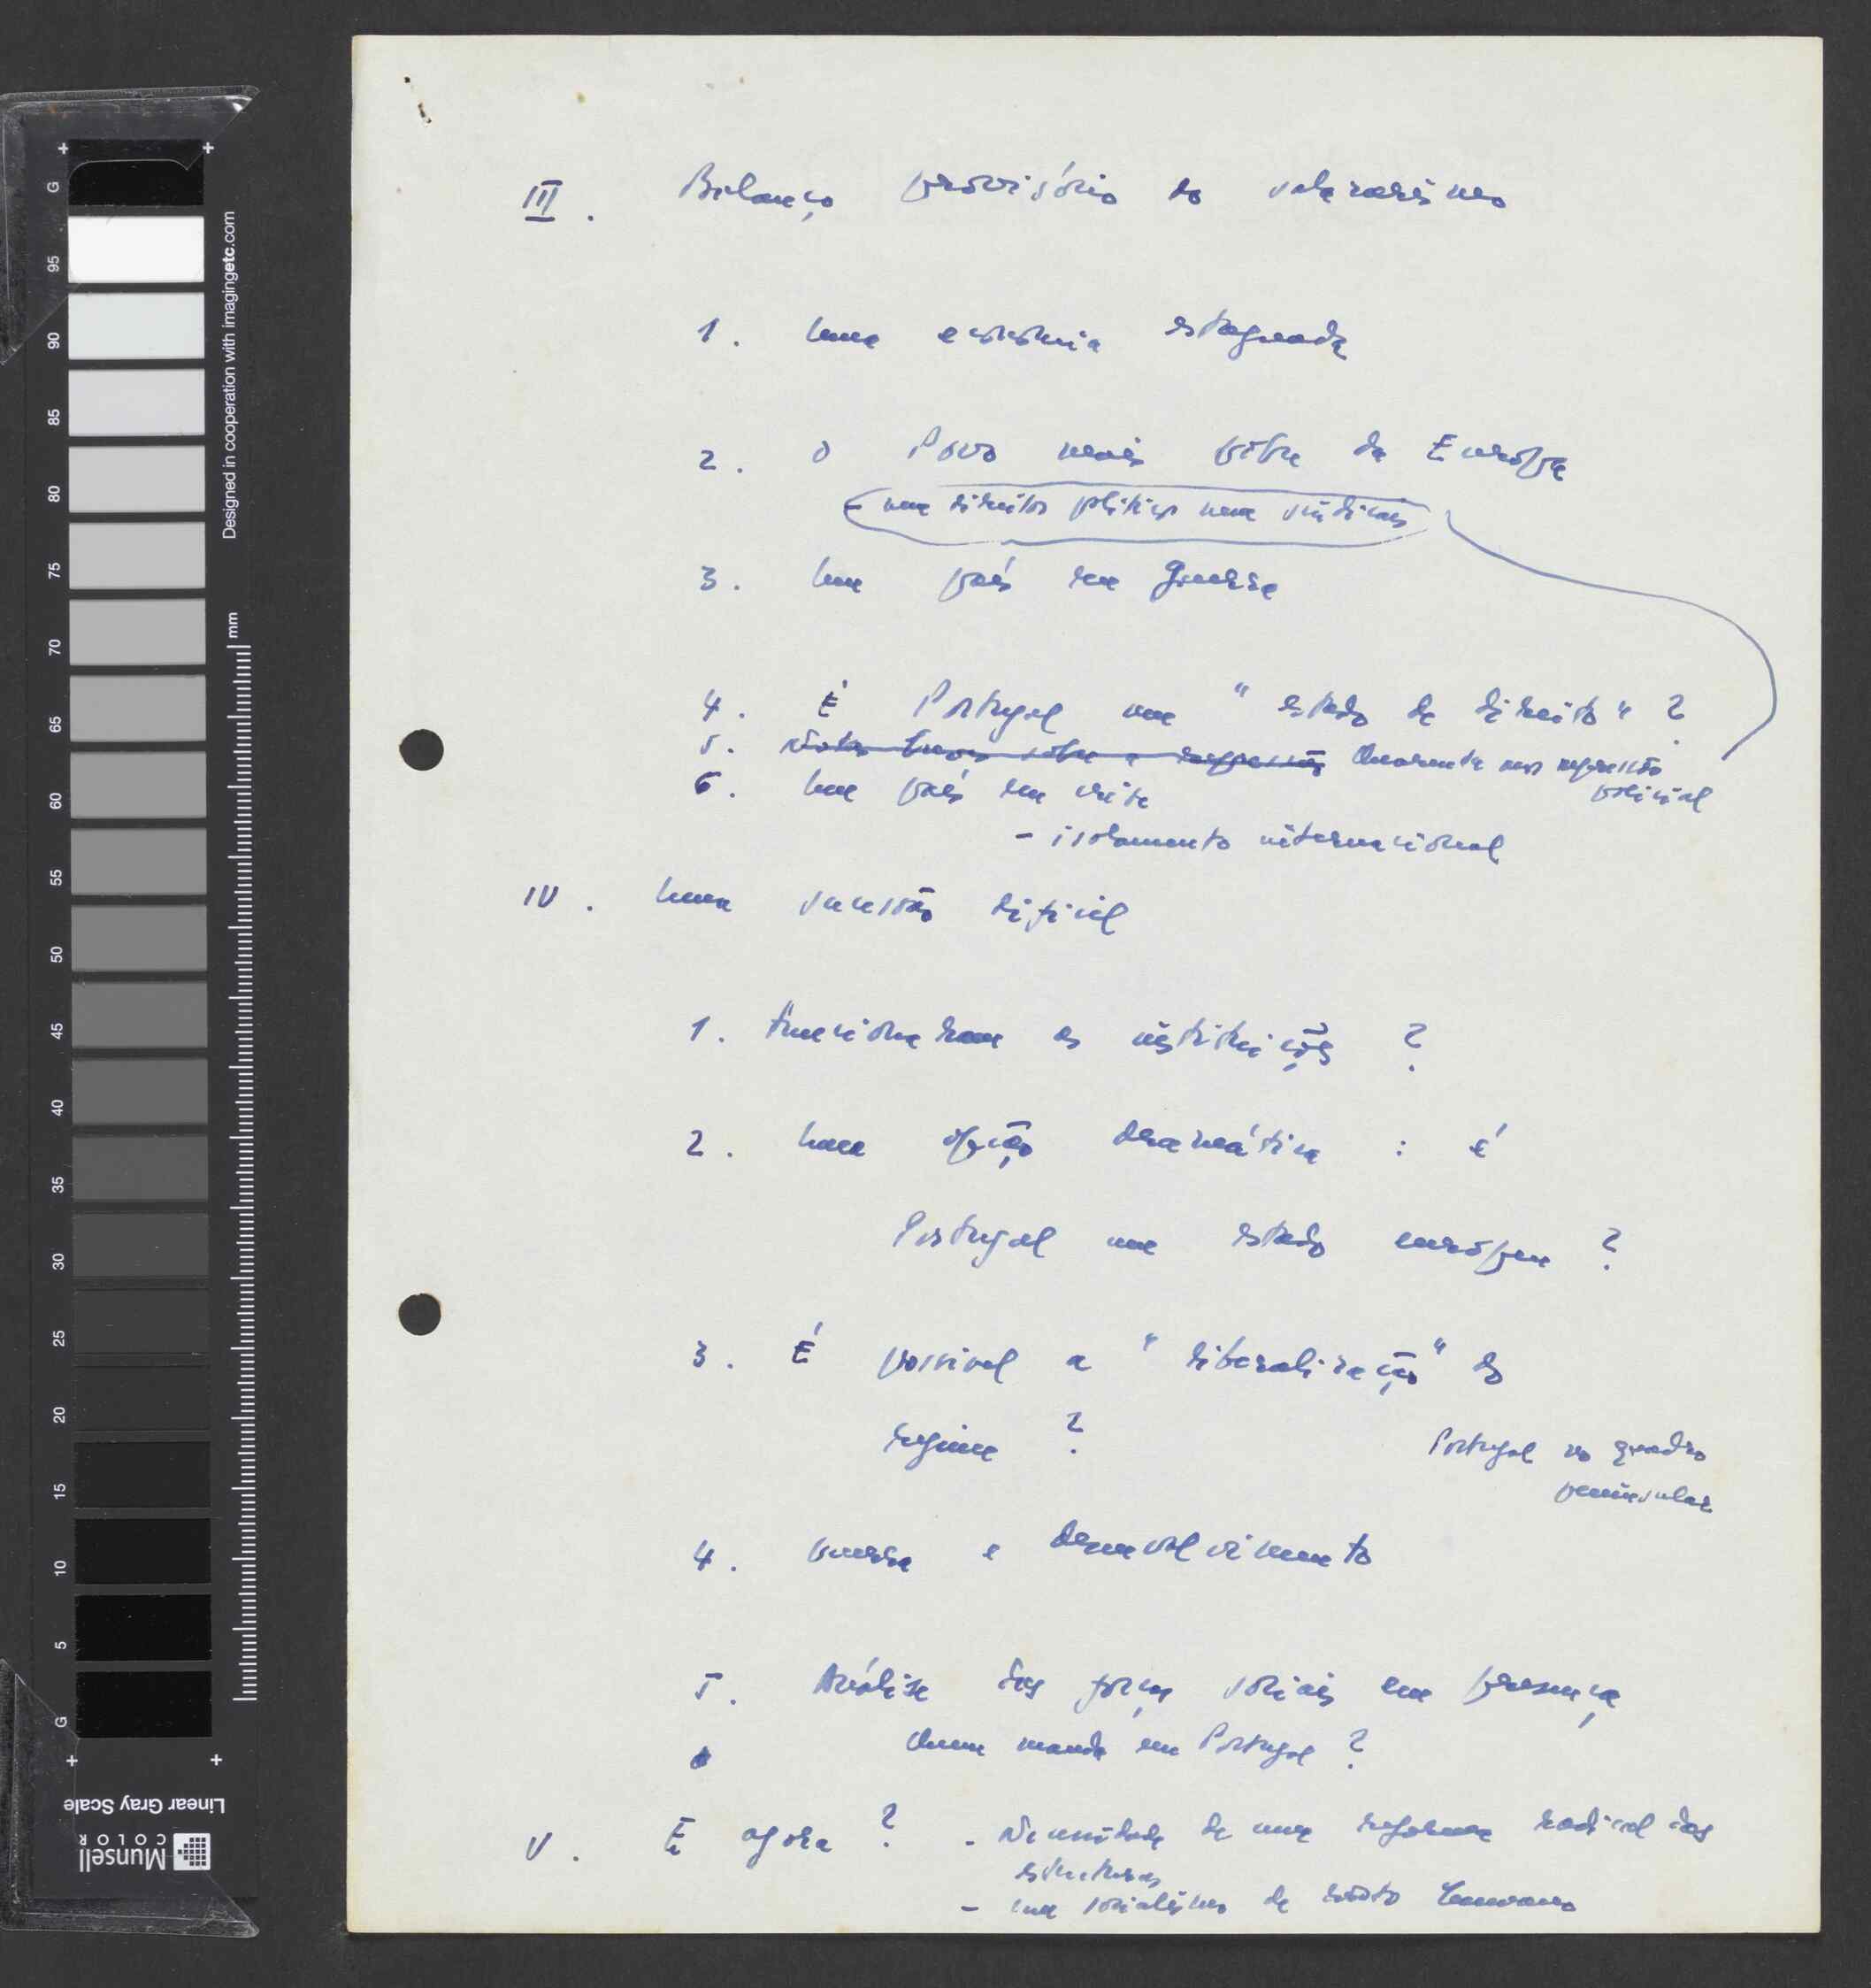 III. Balanço provisório do salazarismo
1. Uma economia estagnada
2. O Povo mais pobre da Europa
- nem direitos politicos nem sindicais
3. Um país em guerra
4. É Portugal um "estado de direito"?
5. Notas breves sobre a repressão Quarenta anos repressão
policial
6. Um país em crise
- isolamento internacional
IV. Uma sucessão dificil
1. Funcionaram as instituições ?
2. Uma opção dramática : é
Portugal um estado europeu ?
3. É possivel a "liberalização" do
regime ?
Portugal no quadro
peninsular
4. Guerra e desenvolvimento
5. Análise das forças sociais em presença
Quem manda em Portugal ?
V. E agora ? - Necessidade de uma reforma radical das
estruturas
- um socialismo de rosto humano
G
95
90
85
80
75
70
65
60
55
50
45
40
35
30
25
20
15
10
5
G
Designed in cooperation with imagingetc.com
mm
Linear Gray Scale
Munsell
COLOR